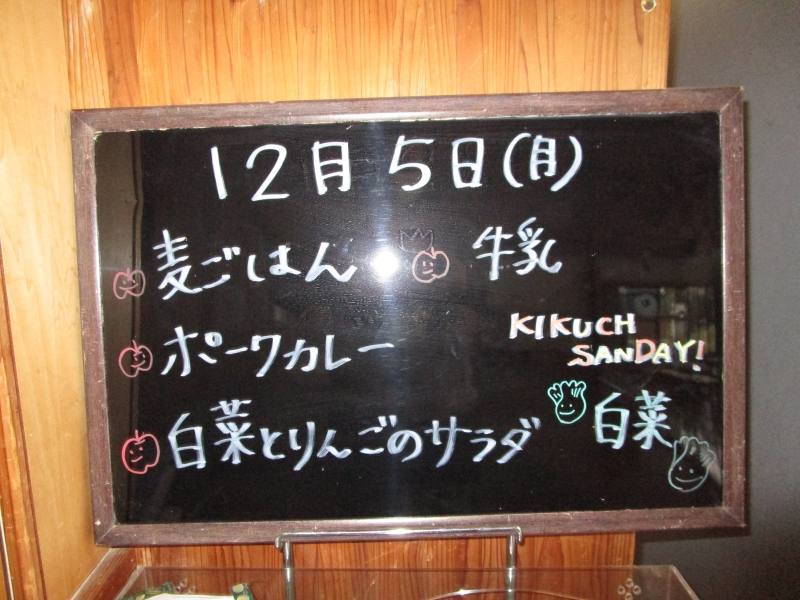 12月5日(月)
麦ごはん 牛乳
ポークカレー
KIKUCH
SANDAY!
白菜とりんごのサラダ
白菜